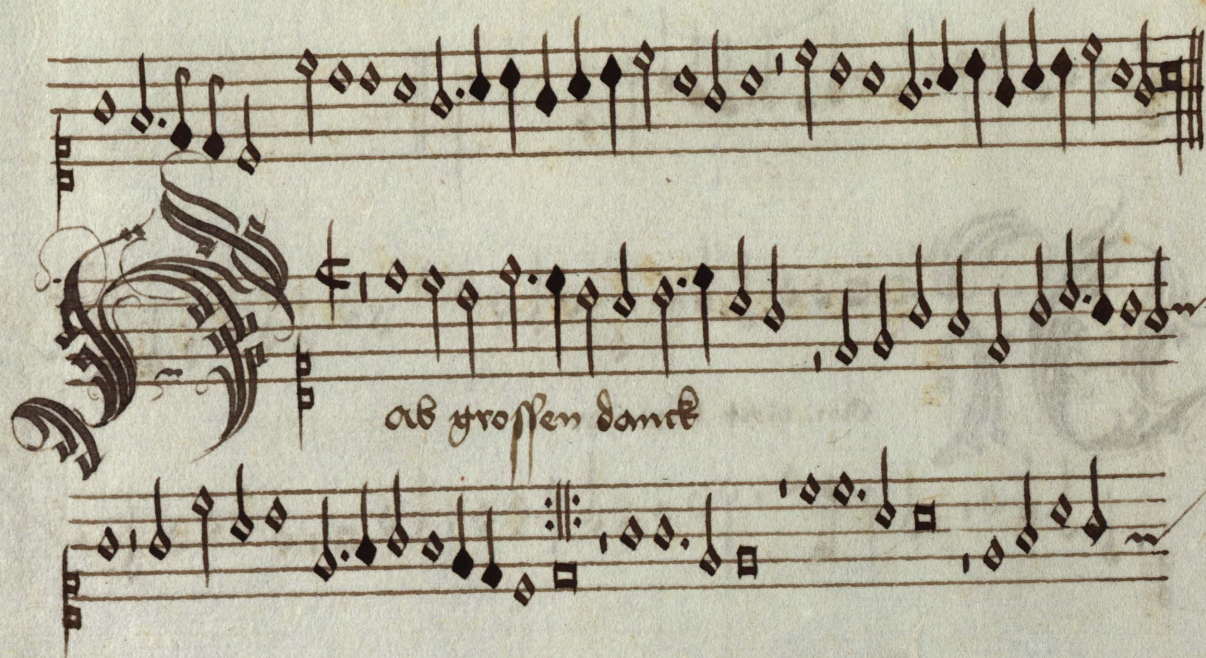 Hab grossen danck